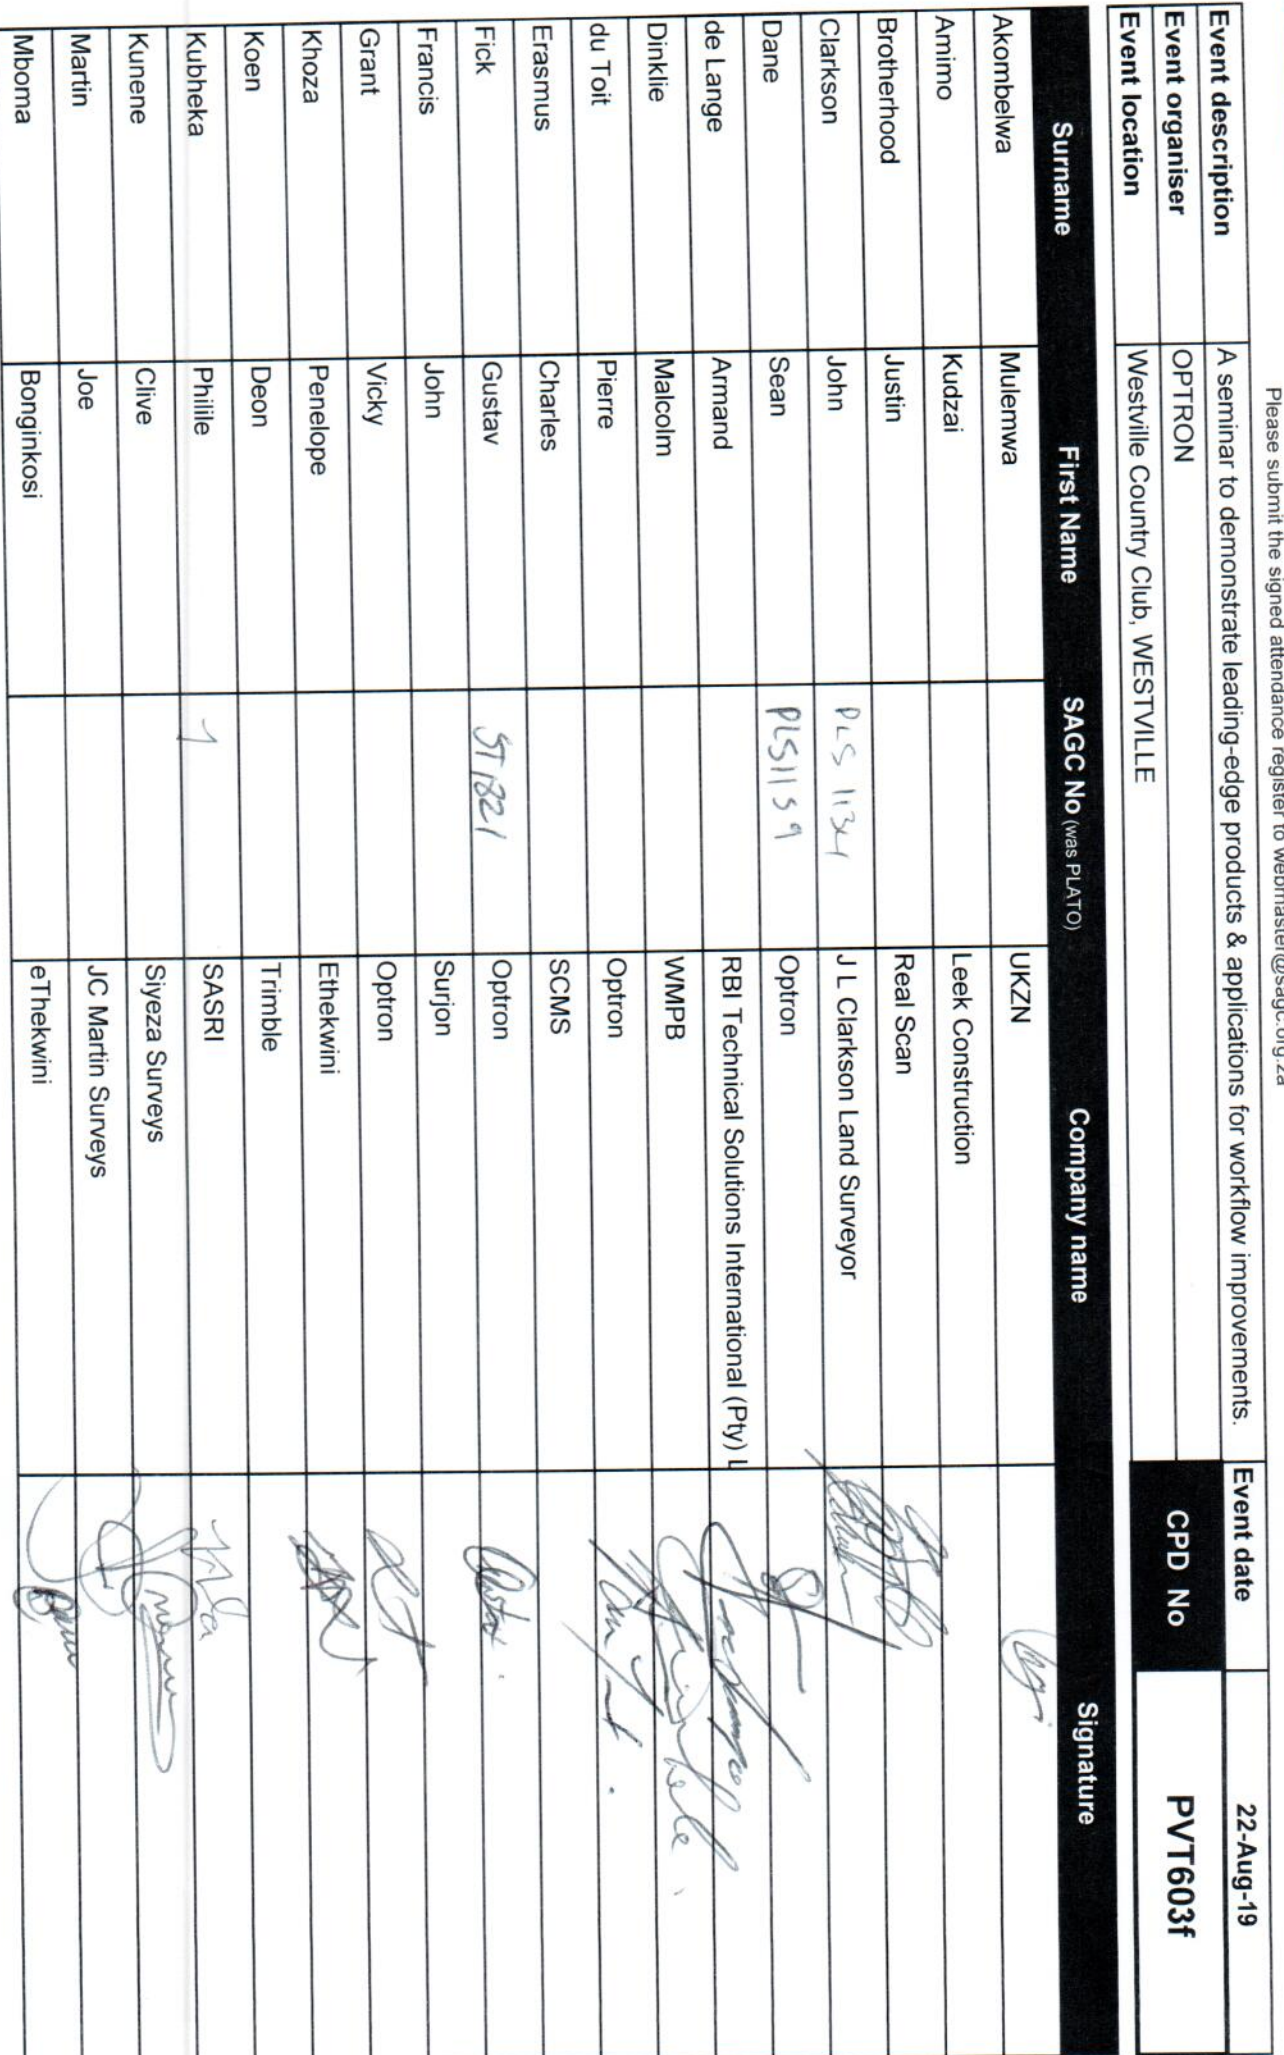 Please submit the signed attendance register to webmaster@sagc.org.za
Event description A seminar to demonstrate leading-edge products & applications for workflow improvements. Event date 22-Aug-19
Event organiser OPTRON CPD No PVT603f
Event location Westville Country Club, WESTVILLE
Surname First Name SAGC No (was PLATO) Company name Signature
Akombelwa Mulemwa UKZN
Amimo Kudzai Leek Construction
Brotherhood Justin Real Scan
Clarkson John PLS 1134 J L Clarkson Land Surveyor
Dane Sean PLS1159 Optron
de Lange Armand RBI Technical Solutions International (Pty) L
Dinklie Malcolm WMPB
du Toit Pierre Optron
Erasmus Charles SCMS
Fick Gustav ST1821 Optron
Francis John Surjon
Grant Vicky Optron
Khoza Penelope Ethekwini
Koen Deon Trimble
Kubheka Philile SASRI
Kunene Clive Siyeza Surveys
Martin Joe JC Martin Surveys
Mboma Bonginkosi eThekwini